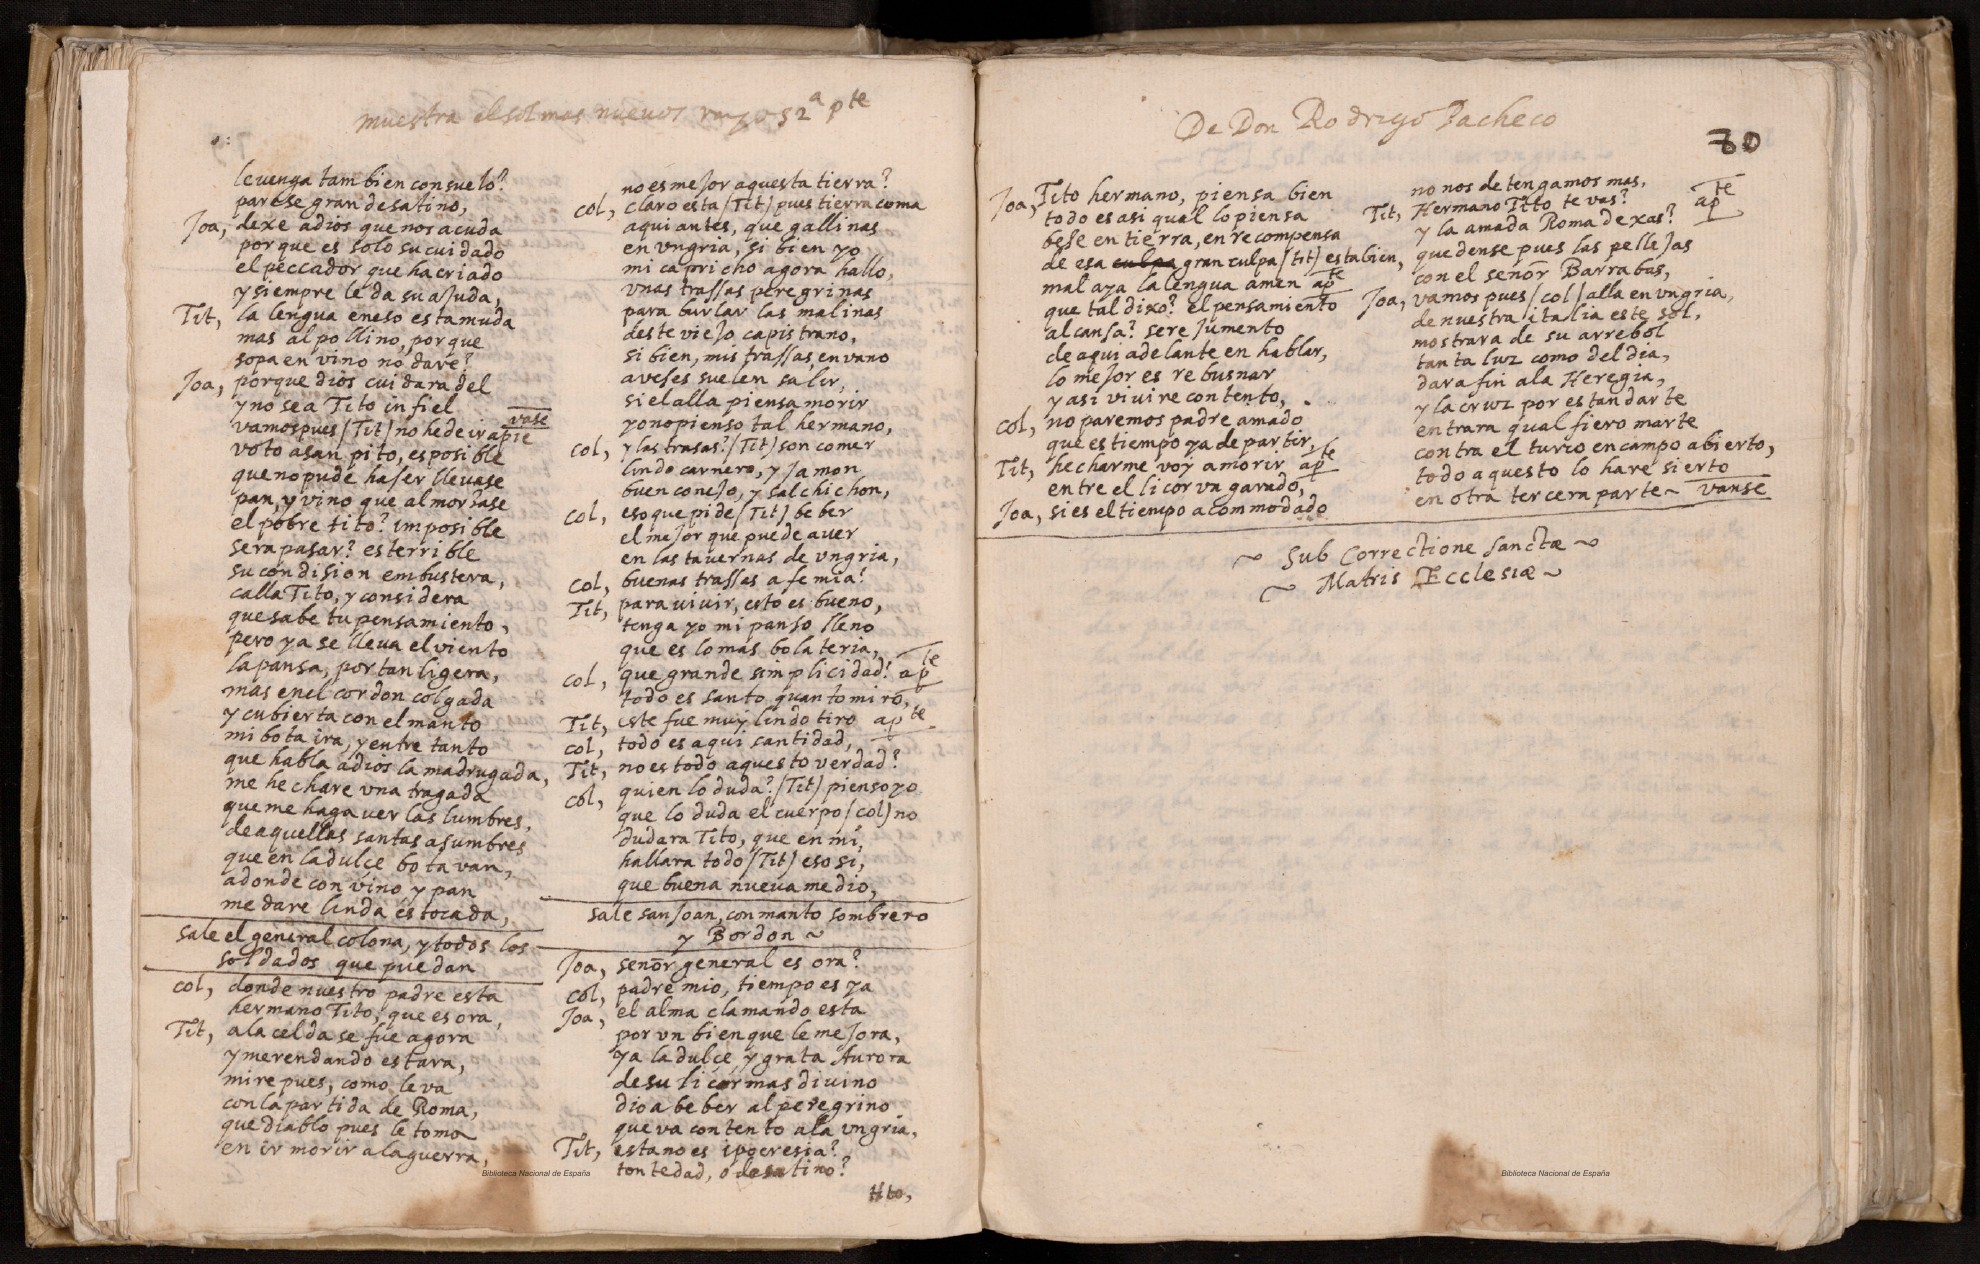 muestra el sol mas nuevos rayos 2ª pte
le venga tambien consuelo?
parese gran desatino,
Joa, dexe a dios que nos acuda
porque es solo su cuidado
el peccador que ha criado
y siempre le da su ajuda,
Tit, la lengua en eso esta muda
mas al pollino, porque
sopa en vino no dare?
Joa, porque dios cuidara del
y no sea Tito infiel
vamos pues (Tit) no he de ir a pie vase
voto a san pito, es posible
que no pude haser llevase
pan, y vino que almorsase
el pobre tito? imposible
sera pasar? es terrible
su condision embustera,
calla Tito, y considera
que sabe tu pensamiento,
pero ya se lleva el viento
la pansa, por tan ligera,
mas en el cordon colgada
y cubierta con el manto
mi bota ira, y entre tanto
que habla a dios la madrugada,
me hechare una tragada
que me haga ver las lumbres,
de aquellas santas asumbres
que en la dulçe bota van,
adonde con vino y pan
me dare linda estocada,
sale el general colona, y todos los
soldados que puedan
col, donde nuestro padre esta
hermano Tito, que es ora,
Tit, a la celda se fue agora
y merendando estara,
mire pues, como le va
con la partida de Roma,
que diablo pues le toma
en ir morir a la guerra,
no es mejor aquesta tierra?
col, claro esta (Tit) pues tierra coma
aqui antes, que gallinas
en vngria, si bien yo
mi capricho agora hallo,
vnas trassas peregrinas
para burlar las malinas
deste viejo capistrano,
si bien, mis trassas, en vano
aveses suelen salir,
si el alla piensa morir
yo no pienso tal hermano,
col, y las trasas? (Tit) son comer
lindo carnero, y jamon
buen conejo, y salchichon,
col, eso que pide (Tit) beber
el mejor que puede aver
en las tavernas de vngria,
col, buenas trassas a fe mia!
Tit, para vivir, esto es bueno,
tenga yo mi panso lleno
que es lo mas bolateria,
col, que grande simplicidad! apte
todo es santo, quanto miro,
Tit, este fue muy lindo tiro apte
col, todo es aqui santidad,
Tit, no es todo aquesto verdad?
col, quien lo duda? (Tit) pienso yo
que lo duda el cuerpo (col) no
dudara Tito, que en mi,
hallara todo (Tit) eso si,
que buena nueva me dio,
sale san Joan, con manto sombrero
y Bordon ~
Joa, señor general es ora?
col, padre mio, tiempo es ya
Joa, el alma clamando esta
por vn bien que le mejora,
ya la dulçe, y grata Aurora
de su licor mas divino
dio a beber al peregrino
que va contento a la vngria,
Tit, esta no es ipocresia?
tontedad, o desatino?
tito,
De Don Rodrigo Pacheco
80
Joa, Tito hermano, piensa bien
todo es asi qual lo piensa
bese en tierra, en recompensa
de esa culpa gran culpa (tit) esta bien,
mal aya la lengua amen apte
que tal dixo? el pensamiento
alcansa? sere jumento
de aqui adelante en hablar,
lo mejor es rebusnar
y asi vivire contento,
col, no paremos padre amado
que es tiempo ya de partir,
Tit, hecharme voy a morir apte
entre el licor vn garado,
Joa, si es el tiempo acommodado
no nos detengamos mas,
Tit, Hermano Tito te vas? apte
y la amada Roma dexas?
quedense pues las pellejas
con el señor Barrabas,
Joa, vamos pues (col) alla en vngria,
de nuestra italia este sol,
mostrara de su arrebol
tanta luz como del dia,
dara fin a la Heregia,
y la cruz por estandarte
entrara qual fiero marte
contra el turco en campo abierto,
todo aquesto lo hare sierto
en otra tercera parte ~ vanse
~ Sub Correctione Sanctæ ~
~ Matris Ecclesiæ ~
Biblioteca Nacional de España
Biblioteca Nacional de España